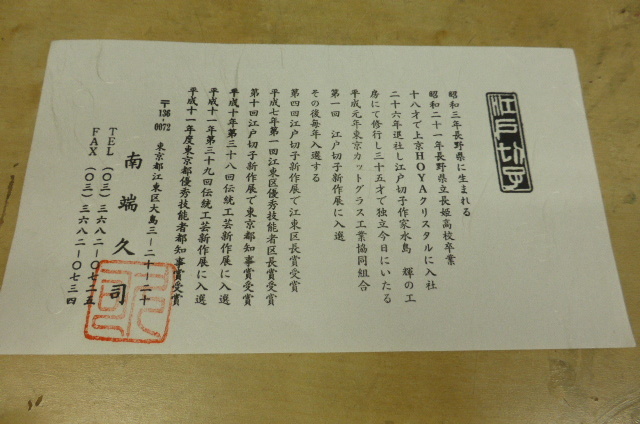 江戸切子
昭和三年長野県に生まれる
昭和二十一年長野県立長姫高校卒業
十八才で上京HOYAクリスタルに入社
二十六年退社し江戸切子作家水島 輝の工
房にて修行し三十五才で独立今日にいたる
平成元年東京カットグラス工業協同組合
第一回 江戸切子新作展に入選
その後毎年入選する
第四回江戸切子新作展で江東区長賞受賞
平成七年第一回江東区優秀技能者区長賞受賞
第十回江戸切子新作展で東京都知事賞受賞
平成十年第三十八回伝統工芸新作展に入選
平成十一年第三十九回伝統工芸新作展に入選
平成十一年度東京都優秀技能者都知事賞受賞
〒136-0072 東京都江東区大島三-二十-二十
南端久司
TEL(〇三)三六八二-〇七二五
FAX(〇三)三六八二-〇七三四